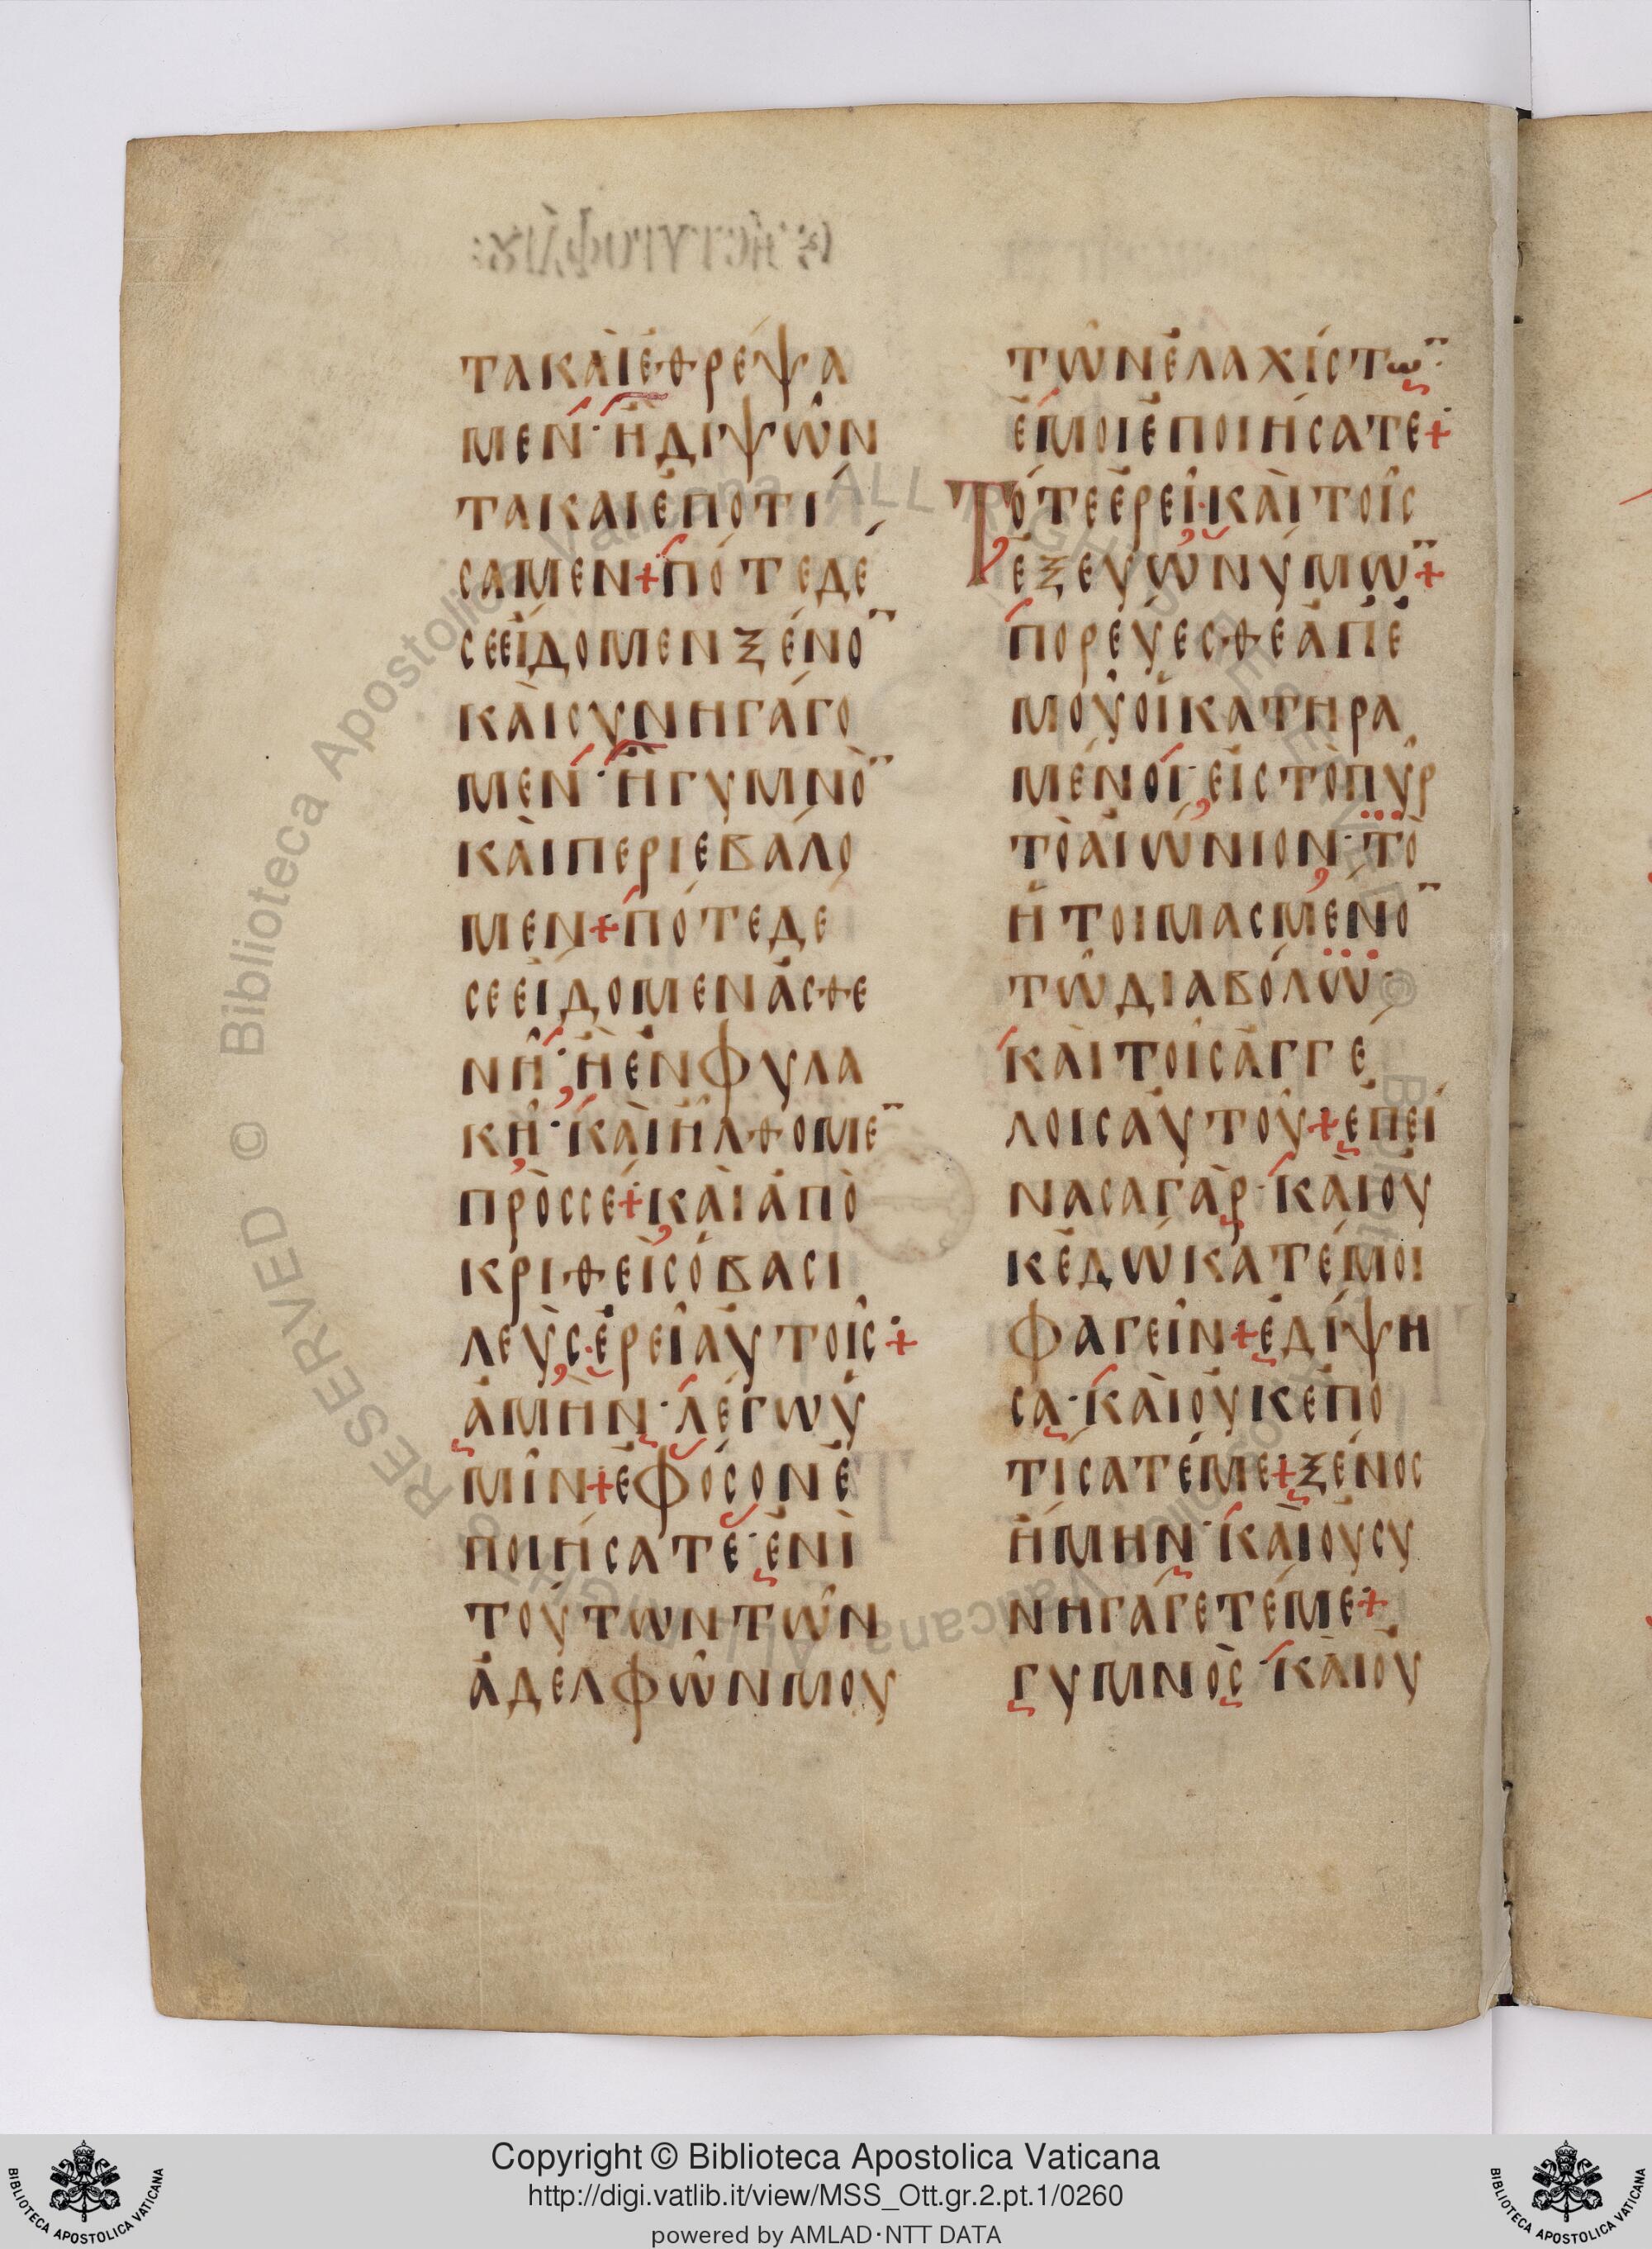 ΤΑΚΑῚἘΘΡΈΨΑ
ΜΕΝ·Ἢ̀ΔΙΨΩ͂Ν
ΤΑΚΑΙἘΠΟΤΊ
ΣΑΜΕΝ+ΠΌΤΕΔΈ
ΣΕΕἼΔΟΜΕΝΞΈΝΟ̅
ΚΑῚΣΥΝΗΓΆΓΟ
ΜΕΝ·ἪΓΥΜΝῸ̅
ΚΑῚΠΕΡΙΕΒΆΛΟ
ΜΕΝ+ΠΌΤΕΔΕ
ΣΕΕἼΔΟΜΕΝἈΣΘΕ
ΝΗ͂·ἪἘΝΦΥΛΑ
ΚΗ͂·ΚΑῚἮΛΘΟΜΕ̅
ΠΡῸΣΣΕ+ΚΑῚἈΠΟ
ΚΡΙΘΕῚΣὉΒΑΣΙ
ΛΕῪΣ·ἘΡΕΙ͂ΑὐΤΟΙ͂Σ+
ἈΜῊΝ·ΛΈΓΩὙ
ΜΙ͂Ν+ἘΦΌΣΟΝἘ
ΠΟΙΉΣΑΤΕ·ἘΝῚ
ΤΟΎΤΩΝΤΩ͂Ν
ἈΔΕΛΦΩ͂ΝΜΟΥ
ΤΩ͂ΝἘΛΑΧΊΣΤΩ̅·
ἘΜΟΙἘΠΟΙΉΣΑΤΕ+
ΤΌΤΕἘΡΕΙ͂·ΚΑῚΤΟΙ͂Σ
ἘΞΕΥΩΝΎΜΩ̅+
ΠΟΡΕΎΕΣΘΕἈΠΕ
ΜΟΥ͂ΟἹΚΑΤΗΡΑ
ΜΈΝΟΙ·ΕἸΣΤῸΠΥ͂Ρ
ΤῸΑἸΏΝΙΟΝ·ΤῸ
ἩΤΟΙΜΑΣΜΈΝΟ̅
ΤΩ͂ΔΙΑΒΌΛΩ·
ΚΑῚΤΟΙ͂ΣἈΓΓΈ
ΛΟΙΣΑὐΤΟΥ͂+ἘΠΕΊ
ΝΑΣΑΓᾺΡ·ΚΑῚΟΥ
ΚἘΔΏΚΑΤΈΜΟΙ
ΦΑΓΕΙ͂Ν+ἘΔΊΨΗ
ΣΑ·ΚΑῚΟὐΚἘΠΟ
ΤΊΣΑΤΈΜΕ+ΞΈΝΟΣ
ἬΜΗΝ·ΚΑῚΟὐΣΥ
ΝΗΓΆΓΕΤΈΜΕ+
ΓΥΜΝῸΣ·ΚΑῚΟὐ
Copyright © Biblioteca Apostolica Vaticana
http://digi.vatlib.it/view/MSS_Ott.gr.2.pt.1/0260
powered by AMLAD·NTT DATA
BIBLIOTECA APOSTOLICA VATICANA
BIBLIOTECA APOSTOLICA VATICANA